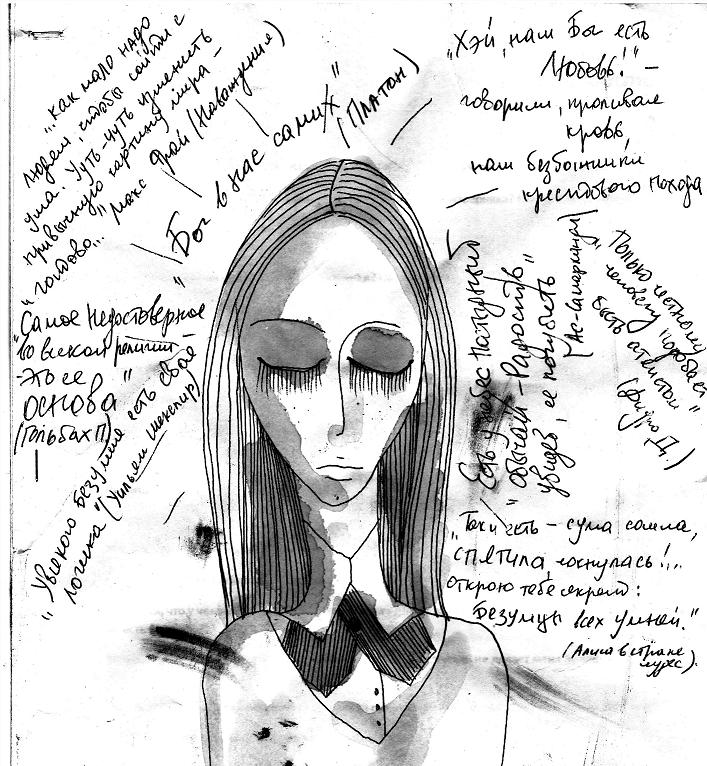 "как мало надо
людям, чтобы сойти с
ума. Чуть-чуть изменить
привычную картину мира –
и готово..." Макс Фрай (Наваждения)
"Бог в нас самих"
(Платон)
"Хэй, наш Бог есть
Любовь!" –
говорили, проливая
кровь,
наш безбожники
крестового похода
"Самое недостоверное
во всякой религии –
- это её
основа"
(Гольбах П)
"У всякого безумия есть своя
логика" (Уильям Шекспир)
Есть у небес натурный
"обычай – Радость
увидев, её погубить"
(Ас-Самарканди)
"Только честному
человеку подобает
быть атеистом"
(Дидро Д.)
"Так и есть – сума сошла,
спятила, чокнулась!..
открою тебе секрет:
Безумцы всех умней."
(Алиса в стране
чудес).